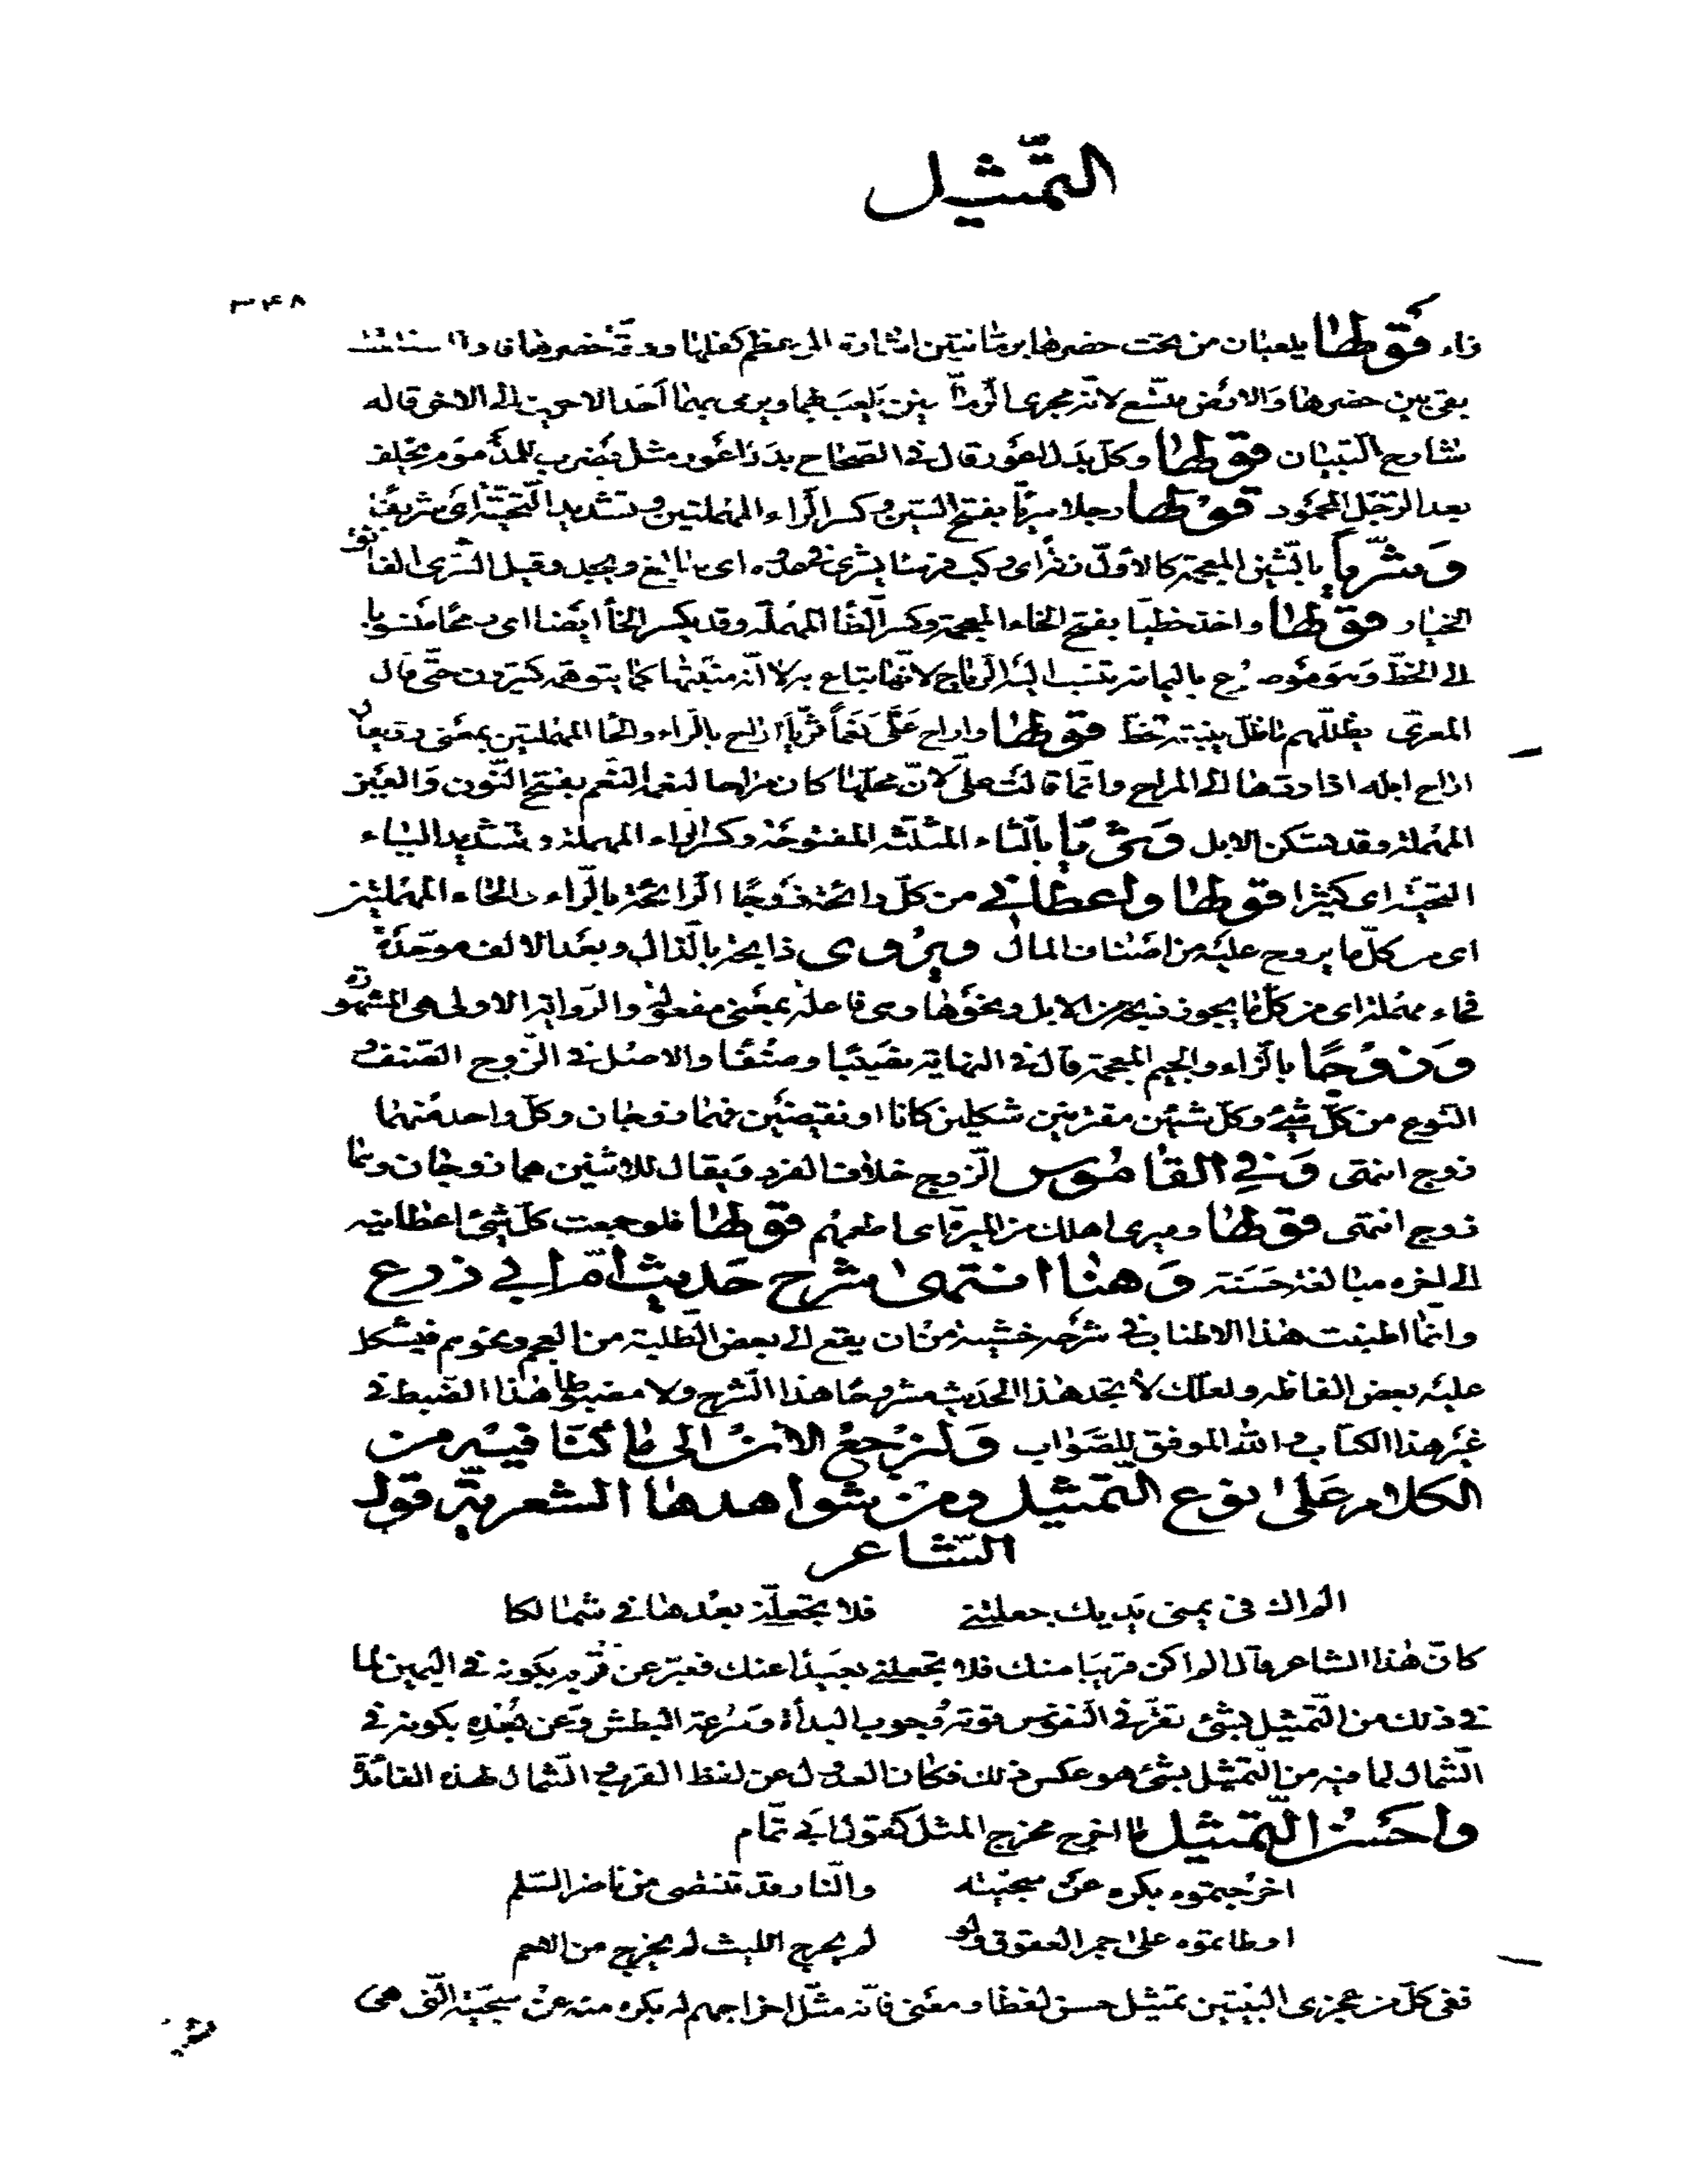 التمثيل
٣٤٨
راء فقولها يلعبان من تحت خصرها برمانتين اشارة الى عظم كفلها ودقة خصرها
يبقى بين خصرها والارض متسع لانه مجرى الرمان بين يلعب فيما ويرمى بهما احد الاخوين الى الاخر قاله
شارح التبيان قولها وكل بدل اعور قال في الصحاح بدل اعور مثل يضرب للمذموم يخلف
بعد الرجل المحمود قولها رجلا سريا بفتح السين وكسر الراء المهملتين وتشديد التحتية اى شريفا
وشريا بالشين المعجمة كالاول وزنا اى ركب فرسا يشرى في عدوه اى يبالغ ويجد وقيل الشرى الفائق
الخيار قولها واخذ خطيا بفتح الخاء المعجمة وكسر الطا المهملة وقد يكسر الخا ايضا اى رمحا منسوبا
الى الخط وهو موضع باليمامة تنسب اليه الرماح لانها تباع به لا انه منبتها كما يتوهمه كثيرون حتى قال
المعرى
قولها واراح على نعما ثريا اراح بالراء والحا المهملتين بمعنى رد يقال
اراح ابله اذا ردها الى المراح وانما قالت على لان محلها كان مراحا لنعمه النعم بفتح النون والعين
المهملة وقد تسكن الابل وثريا بالثاء المثلثة المفتوحة وكسر الراء المهملة وتشديد الياء
التحتية اى كثيرا قولها واعطانى من كل رائحة زوجا الرائحة بالراء والحاء المهملتين
اى من كل ما يروح عليه من اصناف المال ويروى ذابحة بالذال وبعد الالف موحدة
فحاء مهملة اى من كل ما يجوز ذبحه من الابل ونحوها وهى فاعلة بمعنى مفعولة والرواية الاولى هى المشهورة
وزوجا بالزاء والجيم المعجمة قال في النهاية نقيدها وصنفا والاصل في الزوج الصنف و
النوع من كل شئ وكل شيئين مقترنين شكلين كانا او نقيضين فهما زوجان وكل واحد منهما
زوج انتهى وفي القاموس الزوج خلاف الفرد ويقال للاثنين هما زوجان وهما
زوج انتهى قولها وميرى اهلك من الميرة اى اطعمهم قولها فلو جمعت كل شئ اعطانيه
الى اخره مبالغة حسنة وهنا انتهى شرح حديث ام ابى زرع
وانما اطنبت هذا الاطناب في شرحه خشية من ان يقع الى بعض الطلبة من العجم ونحوهم فيشكل
عليه بعض الفاظه ولعلك لا تجد هذا الحديث مشروحا هذا الشرح ولا مضبوطا هذا الضبط في
غير هذا الكتاب والله الموفق للصواب ولنرجع الان الى ما كنا فيه من
الكلام على نوع التمثيل ومن شواهدها الشعرية قول
الشاعر
الم اك في يمنى يديك جعلتنى فلا تجعلنى بعدها في شمالكا
كان هذا الشاعر قال الم اكن قريبا منك فلا تجعلنى بعيدا عنك فعبر عن قربه بكونه في اليمين لما
في ذلك من التمثيل بشئ تقرر في النفوس قوته وجوب البدأة وسرعة البطش وعن بعده بكونه في
الشمال لما فيه من التمثيل بشئ هو عكس ذلك فكان العدول عن لفظ القرب الى الشمال لهذه الفائدة
واحسن التمثيل ما اخرج مخرج المثل كقول ابى تمام
اخرجتموه بكره عن سجيته والنار قد تنتضى من ناضر السلم
اوطأتموه على جمر العقوق ولو لم يحرج الليث لم يخرج من الاجم
ففى كل من عجزى البيتين تمثيل حسن لفظا ومعنى فانه مثل اخراجهم له بكره منه عن سجيته التى هى